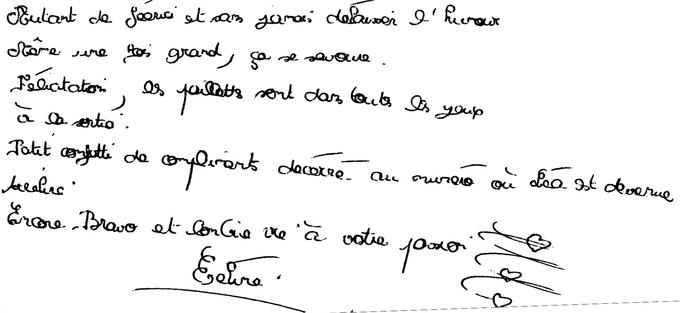 Autant de féerie et sans jamais délaisser l'humour
Même une fois grand, ça se savoure.
Félicitation, les paillettes sont dans touts les yeux
à la sortie.
Petit confetti de compliments décerné au numéro où Léa est devenue
Encore Bravo et longue vie à votre passion